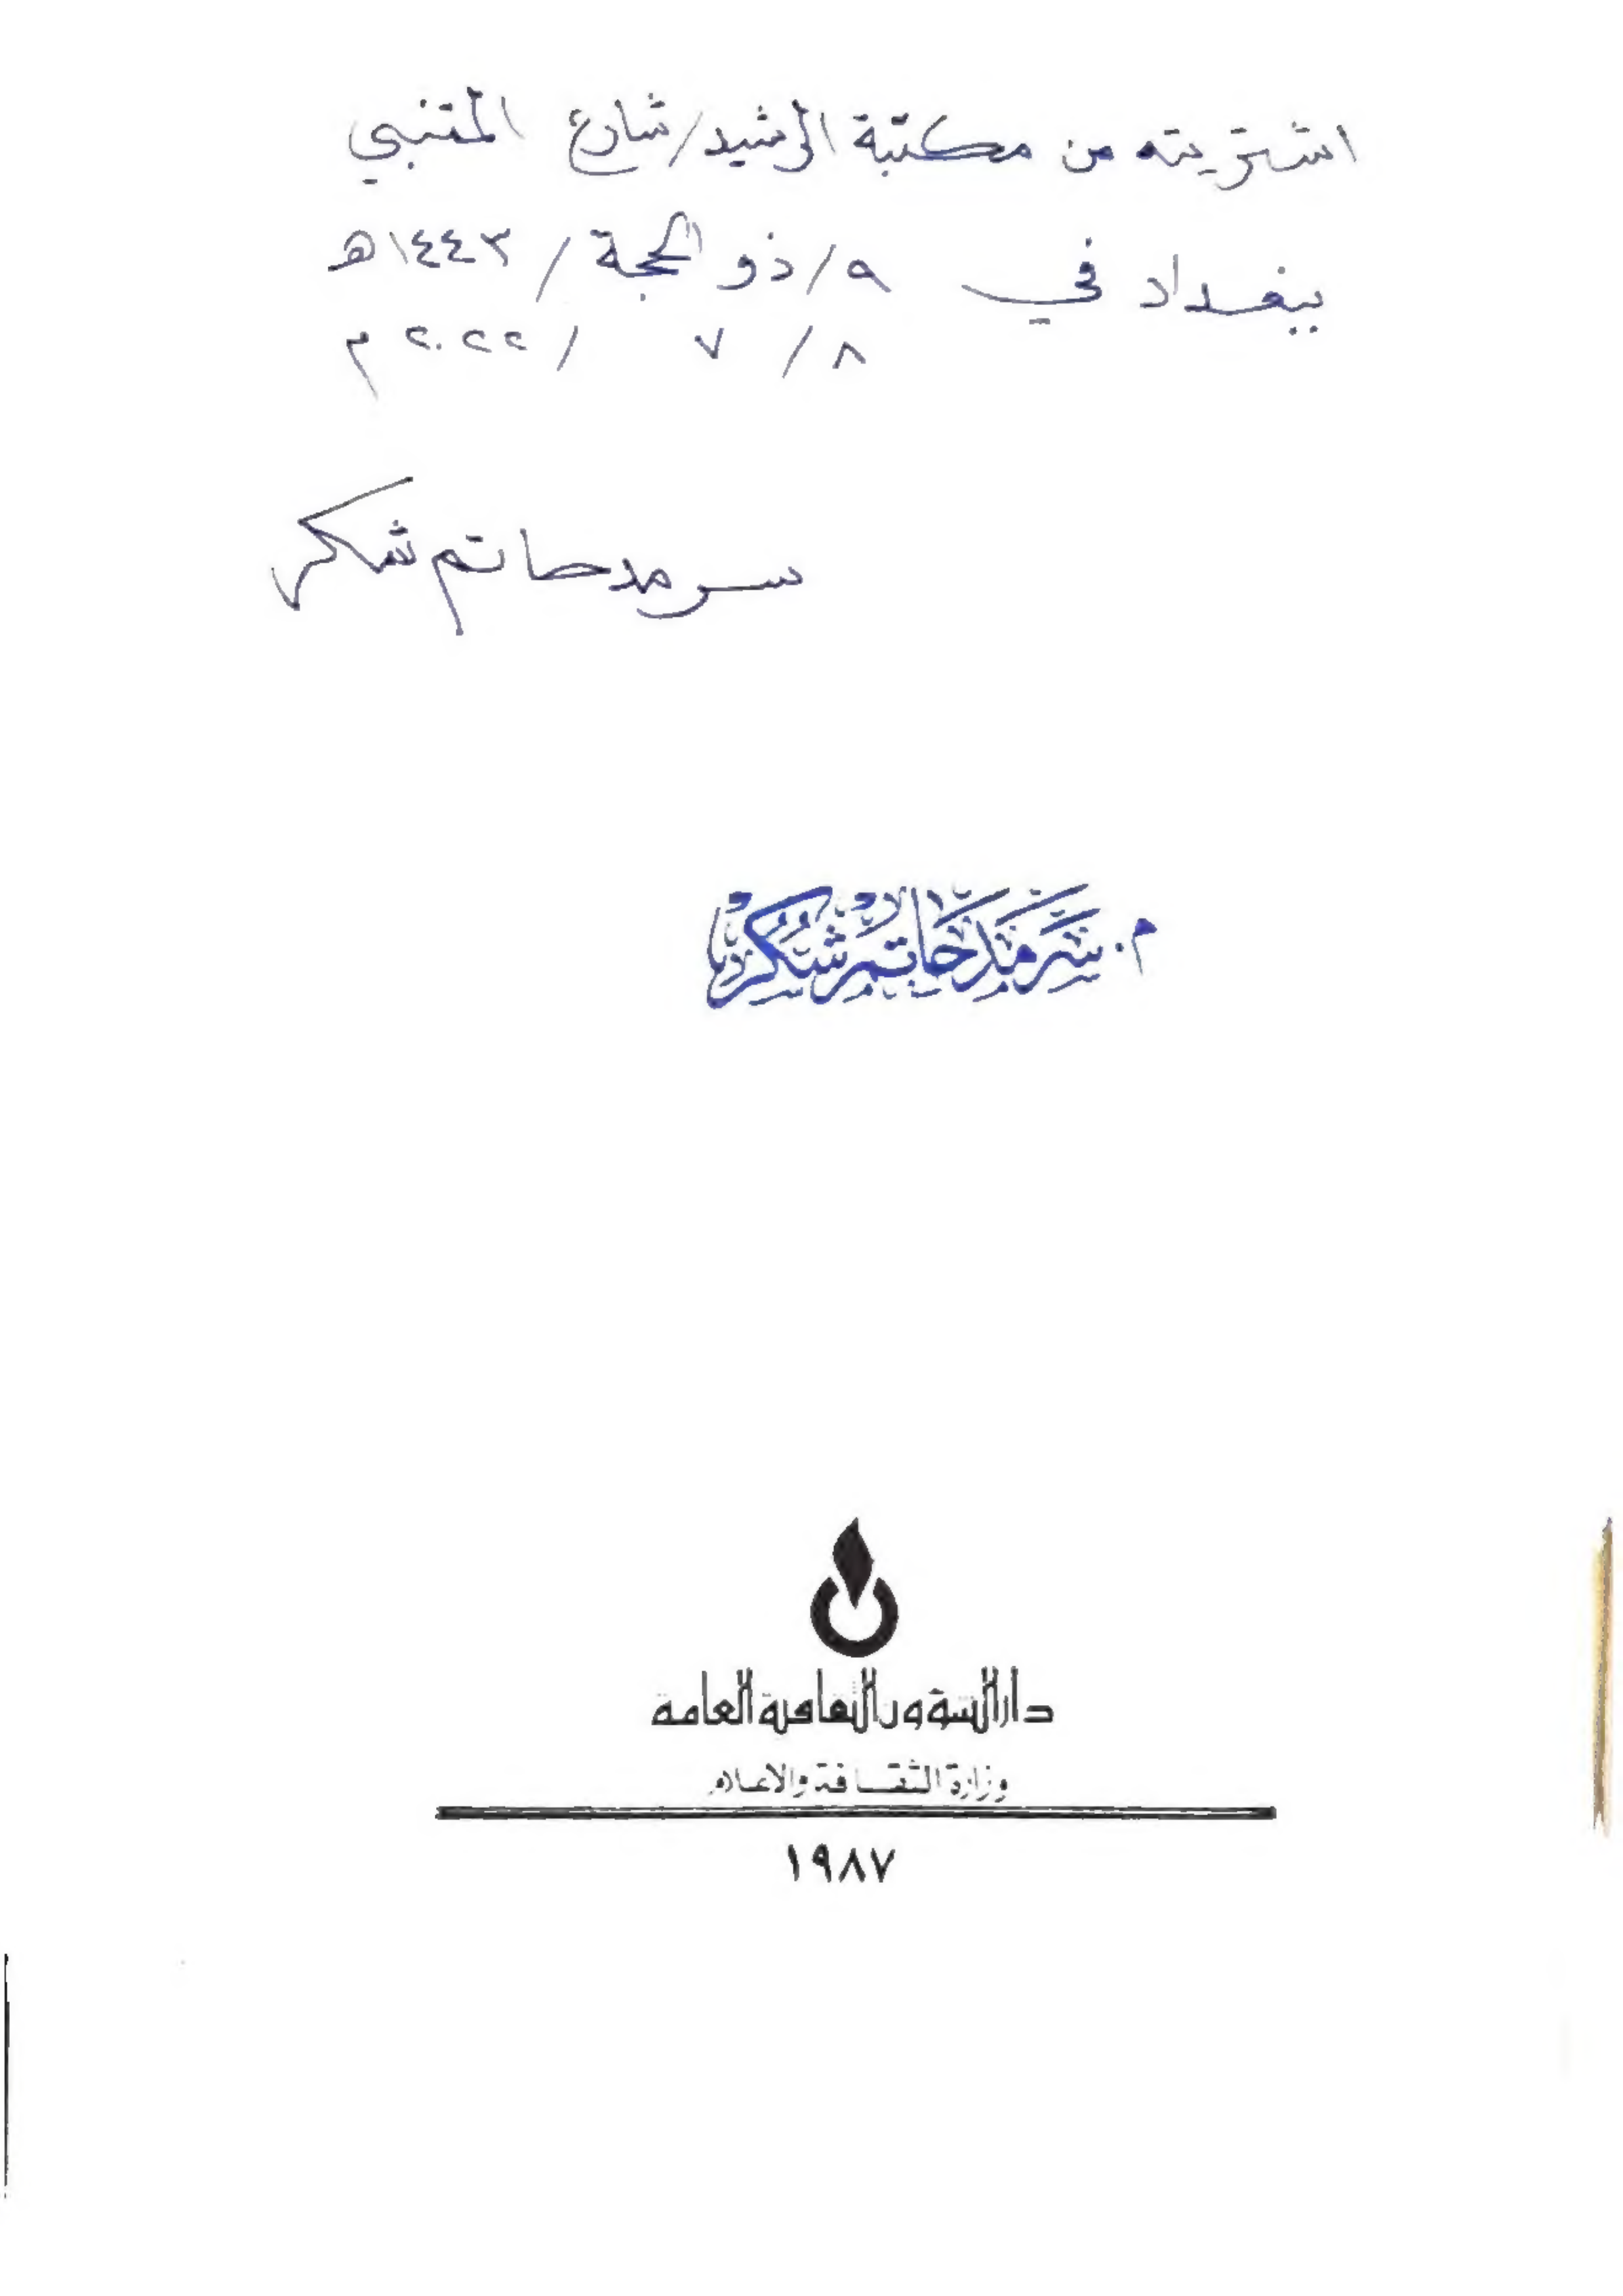 اشتريته من مكتبة الرشيد/شارع المتنبي
ببغداد في ٩/ذو الحجة/١٤٤٣هـ
٨/ ٧ /٢٠٢٢م
سرمد حاتم شكر
م. سرمد حاتم شكر
دار الشؤون الثقافية العامة
وزارة الثقافة والاعلام
١٩٨٧